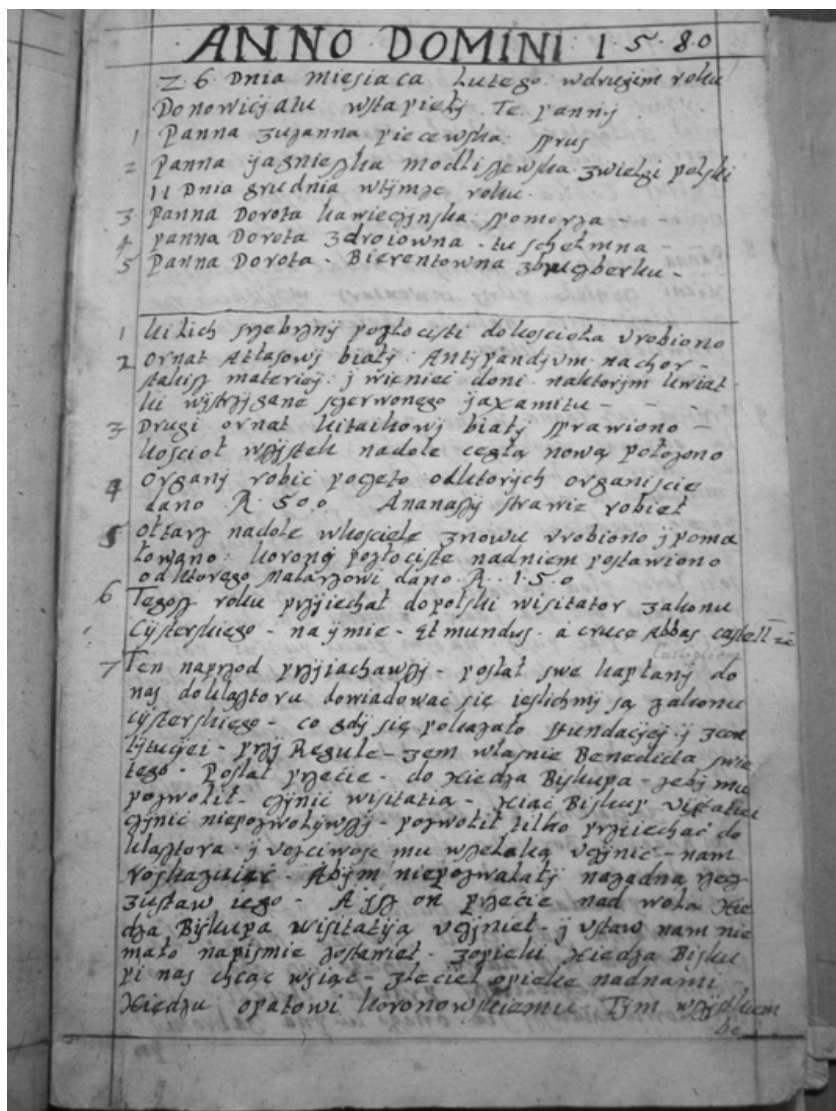 ANNO DOMINI 1·5·8·0
Z 6 Dnia miesiaca Lutego wdrugim roku
Donowicijatu wstapieły Te panny
1 Panna zuzanna piecewska sprus
2 Panna jagnieszka modliszewska zwielgi polski
11 Dnia grudnia wtymze roku
3 Panna Dorota kawieczynska spomorza –
4 panna Dorota zdroiowna – tu schełmna –
5 Panna Dorota – Bierentowna –
1 kielich srzebrny pozłocisti dokoscioła vrobiono
2 ornat Atłasowy biały Antypandyum nachor –
stalisz materiej j wieniec doni naktorym kwiat
ki wystrzygane szerwonego jaxamitu – –
3 Drugi ornat kitaikowy biały sprawiono –
koscioł wszystek nadole cegłą nową położono
4 organy robić poczęto odktorych organiscie
dano R 5 0 0 Ananaszy strawie robieł
5 ołtarz nadole wkosciele znowu vrobiono j poma
łowano: korony pozłociste nadniem postawiono
odktorego Malarzowi dano R 1 5 0
6 Tegosz roku przyiechał dopolski wisitator zakonu
Cysterskiego – na ymie – Etmundus a cruce Abbas castell
7 Ten naprzod przyiachawszy – posłał swe kapłany do
nas doklasztoru dowiadować się ieslichmy są zakonu
cysterskiego – co gdy się pokazało fundacyej y zcon
tytucyei – przy Regule – zem własnie Benedicta swie
tego – Posłał przecie – do Xiedza Biskupa – zeby mu
pozwolił – czynic wisitatią – xiąc Biskup visitatiei
czynic niepozwoliwszy – pozwolił tilko przyiechać do
klasztora – y vczciwosc mu wszelaką vczynic – nam
roskazuiąc – Abym niepozwalały nażadną rzecz
zustaw iego – A isz on przecie nad wolą xie
dza Biskupa wisitatiją vczynieł – y vstaw nam nie
mało napismie zostawieł – zopieki xiedza Bisku
pi nas chcąc wziąc – zlecieł opiekę nadnami
xiedzu opatowi koronowskiemu Tym wszystkiem